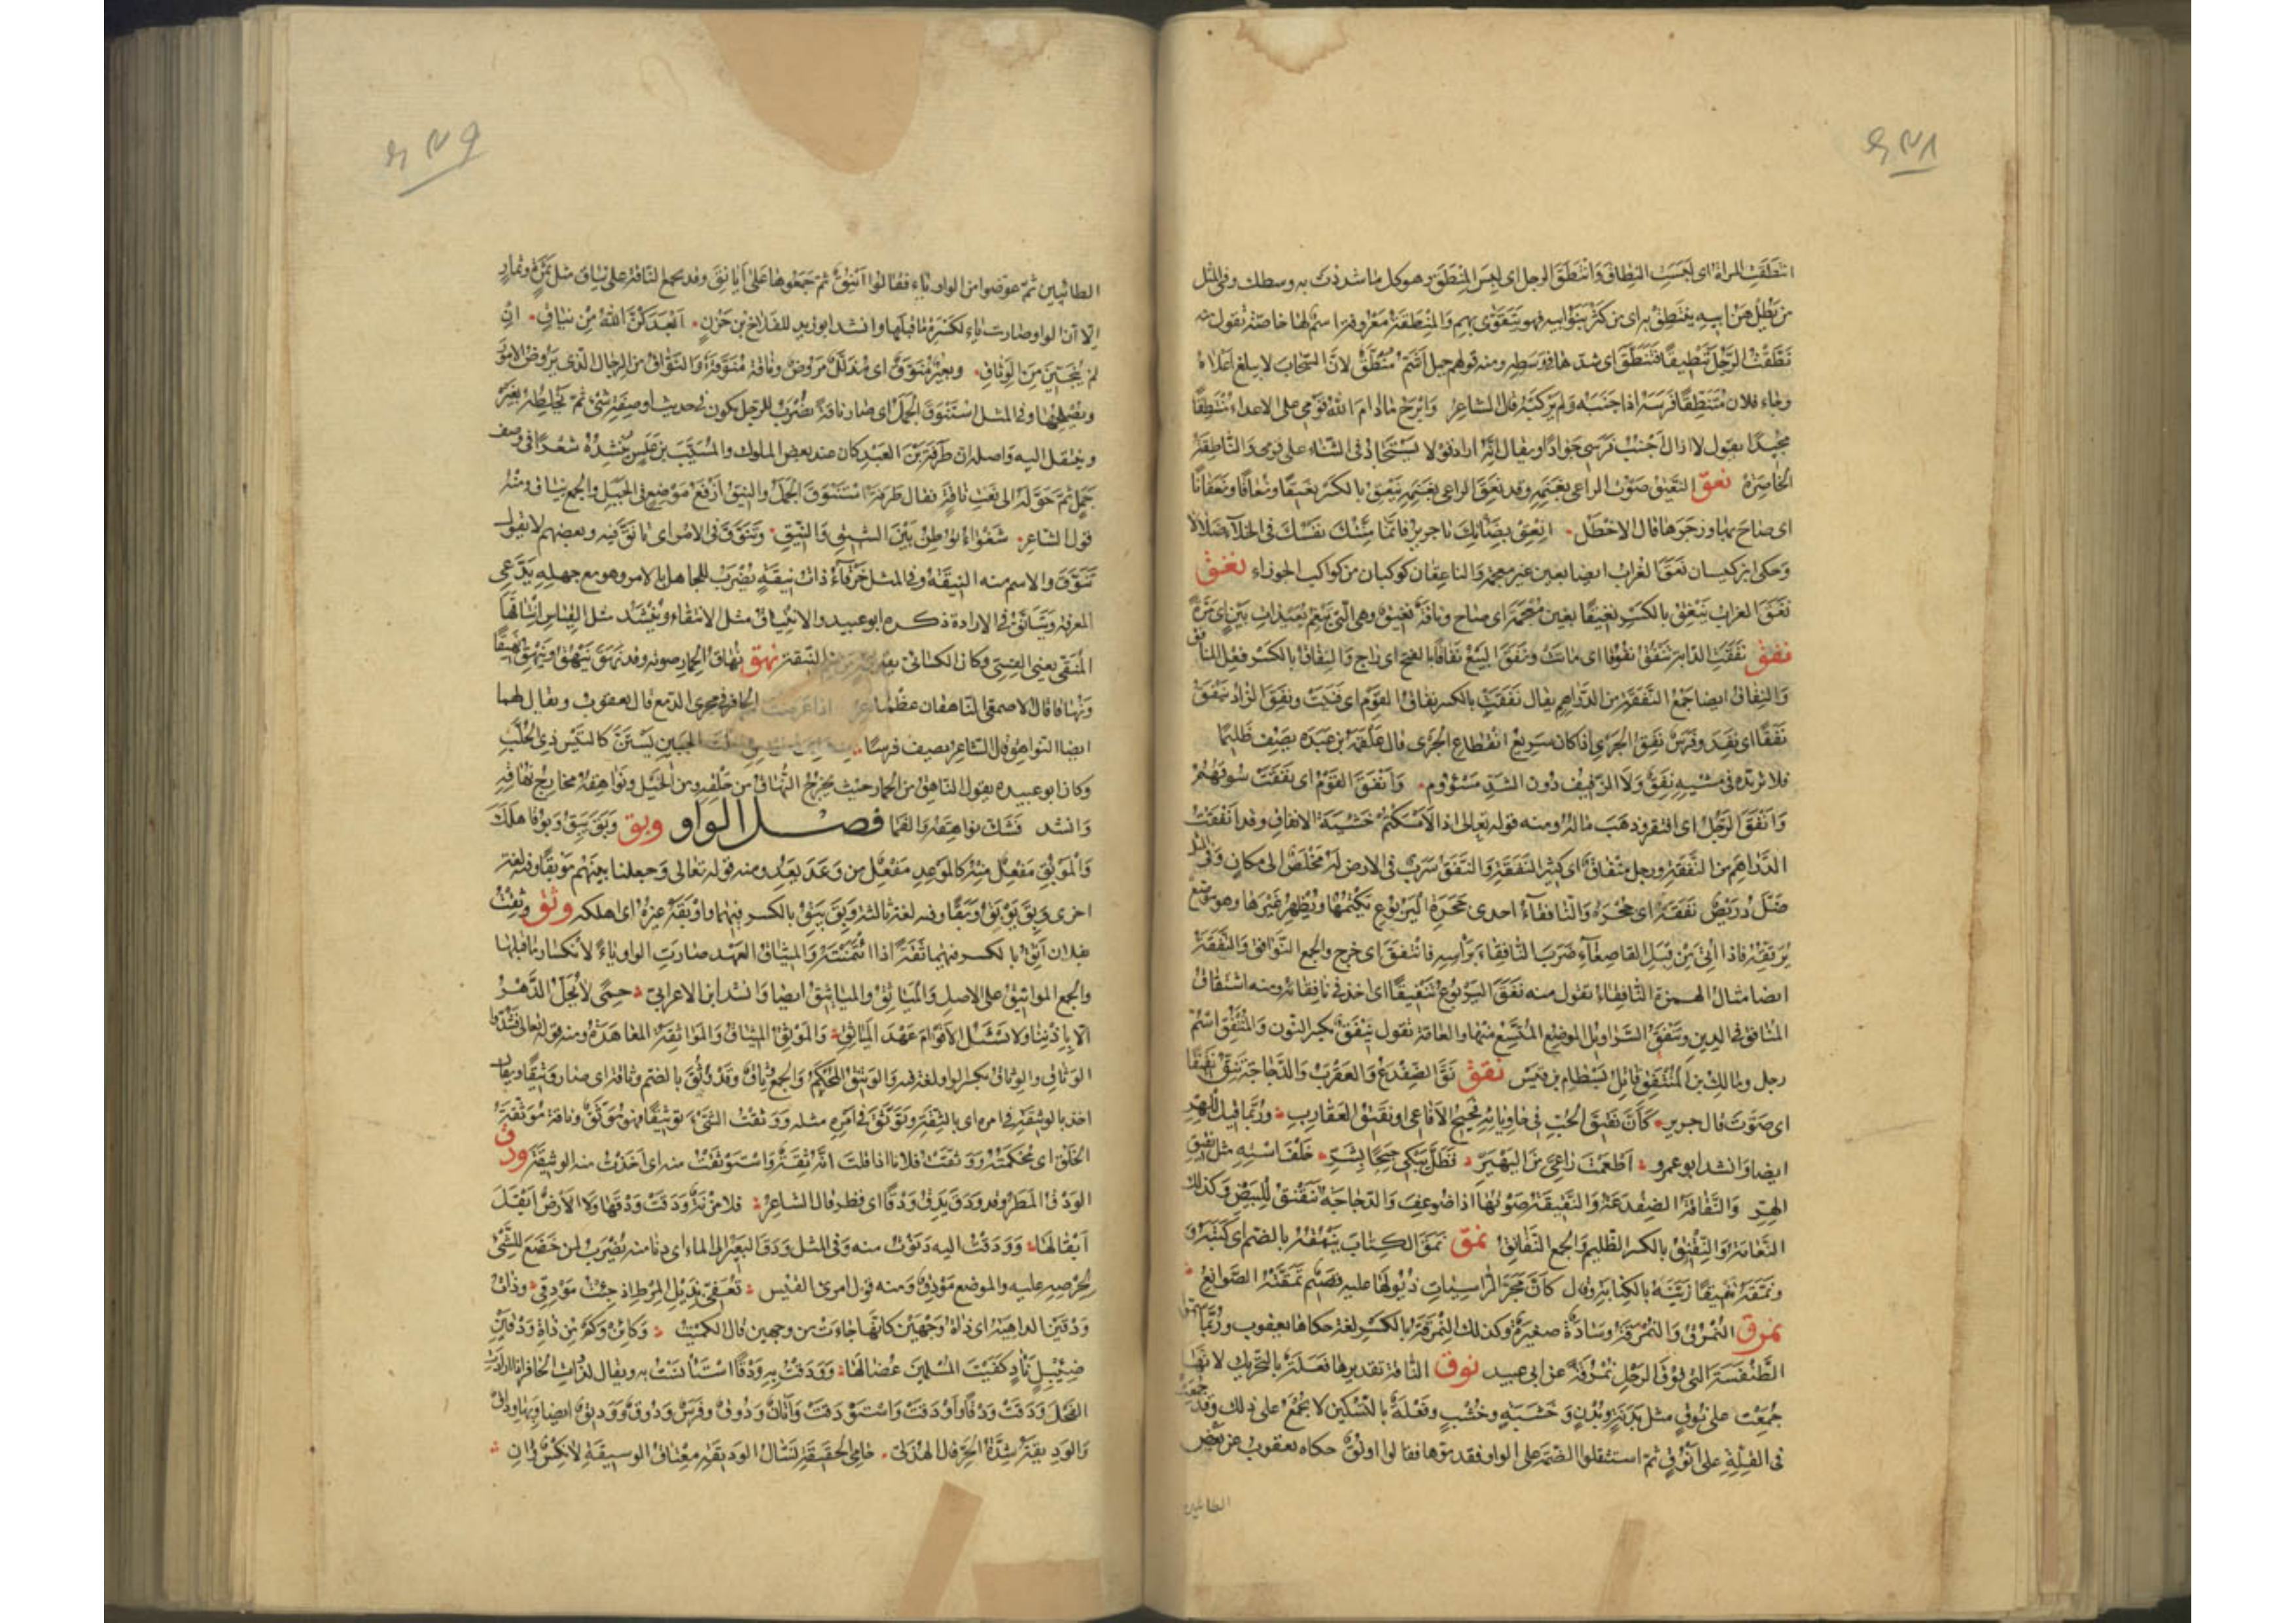 انتطقت المراة اى لبست النطاق وانتطق الرجل اى لبس المنطق وهو كل ما شددت به وسطك وفى المثل
من يطل هن ابيه ينتطق به اى من كثر بنو ابيه فهو يتقوى بهم والمنطقة معروفة اسم لها خاصة تقول منه
نطقت الرجل تنطيقا فتنطق اى شدها فى وسطه ومنه قولهم جبل اشم منطق لان السحاب لا يبلغ اعلاه
وجاء فلان منتطقا فرسه اذا جنبه ولم يركبه قال الشاعر وابرح ما ادام الله قومى على الاعداء منتطقا
مجيدا يقول لا ازال اجنب فرسى جوادا ويقال انه اراد قولا يستجاد فى الثناء على قومى والناطقة
الخاصرة نعق النعيق صوت الراعى بغنمه وقد نعق الراعى بغنمه ينعق بالكسر نعيقا ونعاقا ونعقانا
اى صاح بها وزجرها قال الاخطل انعق بضانك يا جرير فانما منتك نفسك فى الخلآء ضلالا
وحكى ابن كيسان نعق الغراب ايضا بعين غير معجمة والناعقان كوكبان من كواكب الجوزاء نغق
نغق الغراب ينغق بالكسر نغيقا بغين معجمة اى صاح وناقة نغيق وهى التى تبغم بعيدات بين اى مرة
نفق نفقت الدابة تنفق نفوقا اى ماتت ونفق البيع نفاقا بالفتح اى راج والنفاق بالكسر فعل المنافق
والنفاق ايضا جمع النفقة من الدراهم يقال نفقت بالكسر نفاق القوم اى فنيت ونفق الزاد ينفق
نفقا اى نفد وفرس نفق الجرى اذا كان سريع انقطاع الجرى قال علقمة بن عبده يصف ظليما
فلا تزيده فى مشيه نفق ولا الزفيف دون الشد مسؤوم وانفق القوم اى نفقت سوقهم
وانفق الرجل اى افتقر وذهب ماله ومنه قوله تعالى اذا لامسكتم خشية الانفاق وقد انفقت
الدراهم من النفقة ورجل منفاق اى كثير النفقة والنفق سرب فى الارض له مخلص الى مكان وفى المثل
ضل دريص نفقه اى جحره والنافقآء احدى جحرة اليربوع يكتمها ويظهر غيرها وهو موضع
يرققه فاذا اتى من قبل القاصعآء ضرب النافقاء براسه فانتفق اى خرج والجمع النوافق والنفقة
ايضا مثال الهمزة النافقاء تقول منه نفق اليربوع تنفيقا اى اخذ فى نافقائه ومنه اشتقاق
المنافق فى الدين ونيفق السراويل الموضع المتسع منها والعامة تقول نيفق بكسر النون والمنتفق اسم
رجل ومالك بن المنتفق قاتل بسطام بن قيس نقق نق الضفدع والعقرب والدجاجة تنق نقيقا
اى صوت قال جرير كان نقيق الحب فى حاويائه فحيح الافاعى او نقيق العقارب وربما قيل للهر
ايضا وانشد ابو عمرو اطعمت راعى من اليهير فظل يبكى حبجا بشر خلف استه مثل نقيق
الهر والنقاقة الضفدعة والنقيقة صوتها اذا ضوعف والدجاجة تنقنق للبيض وكذلك
النعامة والنقنق بالكسر الظليم والجمع النقانق نمق نمق الكتاب ينمقه بالضم اى كتبه و
ونمقه تنميقا زينه بالكتابة وقال كان مجر الرامسات ذيولها عليه قضيم نمقته الصوانع
نمرق النمرق والنمرقة وسادة صغيرة وكذلك النمرقة بالكسر لغة حكاها يعقوب وربما سموا
الطنفسة التى فوق الرحل نمرقة عن ابى عبيد نوق الناقة تقديرها فعلة بالتحريك لانها
جمعت على نوق مثل بدنة وبدن وخشبة وخشب وفعلة بالتسكين لا تجمع على ذلك وقد جمعت
فى القلة على انوق ثم استثقلوا الضمة على الواو فقدموها فقالوا اونق حكاه يعقوب عن بعض
الطائيين
الطائيين ثم عوضوا من الواو ياء فقالوا اينق ثم جمعوها على ايانق وقد تجمع الناقة على نياق مثل ثمرة وثمار
الا ان الواو صارت ياء لكسرة ما قبلها وانشد ابو زيد للقلاخ بن حزن ابعدكن الله من نياق ان
لم تنجين من الوثاق وبعير منوق اى مذلل مروض وناقة منوقة والنواق من الرجال الذى يروض الامور
ويصلحها وفى المثل استنوق الجمل اى صار ناقة يضرب للرجل يكون فى حديث او صفة شئ ثم يخلطه بغيره
وينتقل اليه واصله ان طرفة بن العبد كان عند بعض الملوك والمسيب بن علس ينشده شعرا فى وصف
جمل ثم حوله الى نعت ناقة فقال طرفة استنوق الجمل والنيق ارفع موضع فى الجبل والجمع نياق ومنه
قول الشاعر شغواء توطن بين الشيق والنيق وتنوق فى الامر اى تانق فيه وبعضهم لا يقول
تنوق والاسم منه النيقة وفى المثل خرقآء ذات نيقة يضرب للجاهل بالامر وهو مع جهله يدعى
المعرفة ويتانق فى الارادة ذكره ابو عبيد والانتياق مثل الانتقاء وينشد مثل القياس انتاقها
المنقى يعنى القسى وكان الكسائى يقول هو من النيقة نهق نهاق الحمار صوته وقد نهق ينهق وينهق نهيقا
ونهاقا قال الاصمعى الناهقان عظمان الحافر فى مجرى الدمع قال يعقوب ويقال لهما
ايضا النواهق قال الشاعر يصف فرسا الجبين يستن كالتيس ذى الحلب
وكان ابو عبيدة يقول الناهق من الحمار حيث يخرج النهاق من حلقه ومن الخيل نواهقه مخارج نهاقه
وانشد فشك نواهقه والفما فصل الواو وبق وبق يبق وبوقا هلك
والموبق مفعل منه كالموعد مفعل من وعد يعد ومنه قوله تعالى وجعلنا بينهم موبقا وفيه لغة
اخرى وبق يوبق وبقا وفيه لغة ثالثة وبق يبق بالكسر فيهما واوبقه غيره اى اهلكه وثق وثقت
بفلان اثق بالكسر فيهما ثقة اذا ائتمنته والميثاق العهد صارت الواو ياء لانكسار ما قبلها
والجمع المواثيق على الاصل والمياثق والمياثيق ايضا وانشد ابن الاعرابى حمى لا يحل الدهر
الا باذننا ولا نسئل الاقوام عهد المياثق والموثق الميثاق والمواثقة المعاهدة ومنه قوله تعالى فشدوا
الوثاق والوثاق بكسر الواو لغة فيه والوثيق المحكم والجمع وثاق وقد وثق بالضم وثاقة اى صار وثيقا ويقال
اخذ بالوثيقة فى امره اى بالثقة وتوثق فى امره مثله ووثقت الشئ توثيقا فهو موثق وناقة موثقة
الخلق اى محكمته ووثقت فلانا اذا قلت انه ثقة واستوثقت منه اى اخذت منه الوثيقة ودق
الودق المطر وقد ودق يدق ودقا اى قطر قال الشاعر فلا مزنة ودقت ودقها ولا ارض ابقل
ابقالها وودقت اليه دنوت منه وفى المثل ودق البعير الى الماء اى دنا منه يضرب لمن خضع للشئ
لحرصه عليه والموضع مودق ومنه قول امرئ القيس تعفى بذيل المرط اذ جئت مودقى وذات
ودقين الداهية اى ذاة وجهين كانها جاءت من وجهين قال الكميت وكائن وكم من ذاة ودقين
ضئبل ناد كفيت المسلمين عضالها وودقت به ودقا استانست به ويقال لذوات الحافر اذا ارادت
الفحل ودقت ودقا واودقت واستودقت واتان ودوق وفرس ودوق ووديق ايضا وبها وداق
والوديقة شدة الحر قال الهذلى حامى الحقيقة نسال الوديقة معتاق الوسيقة لا نكس ولا وان